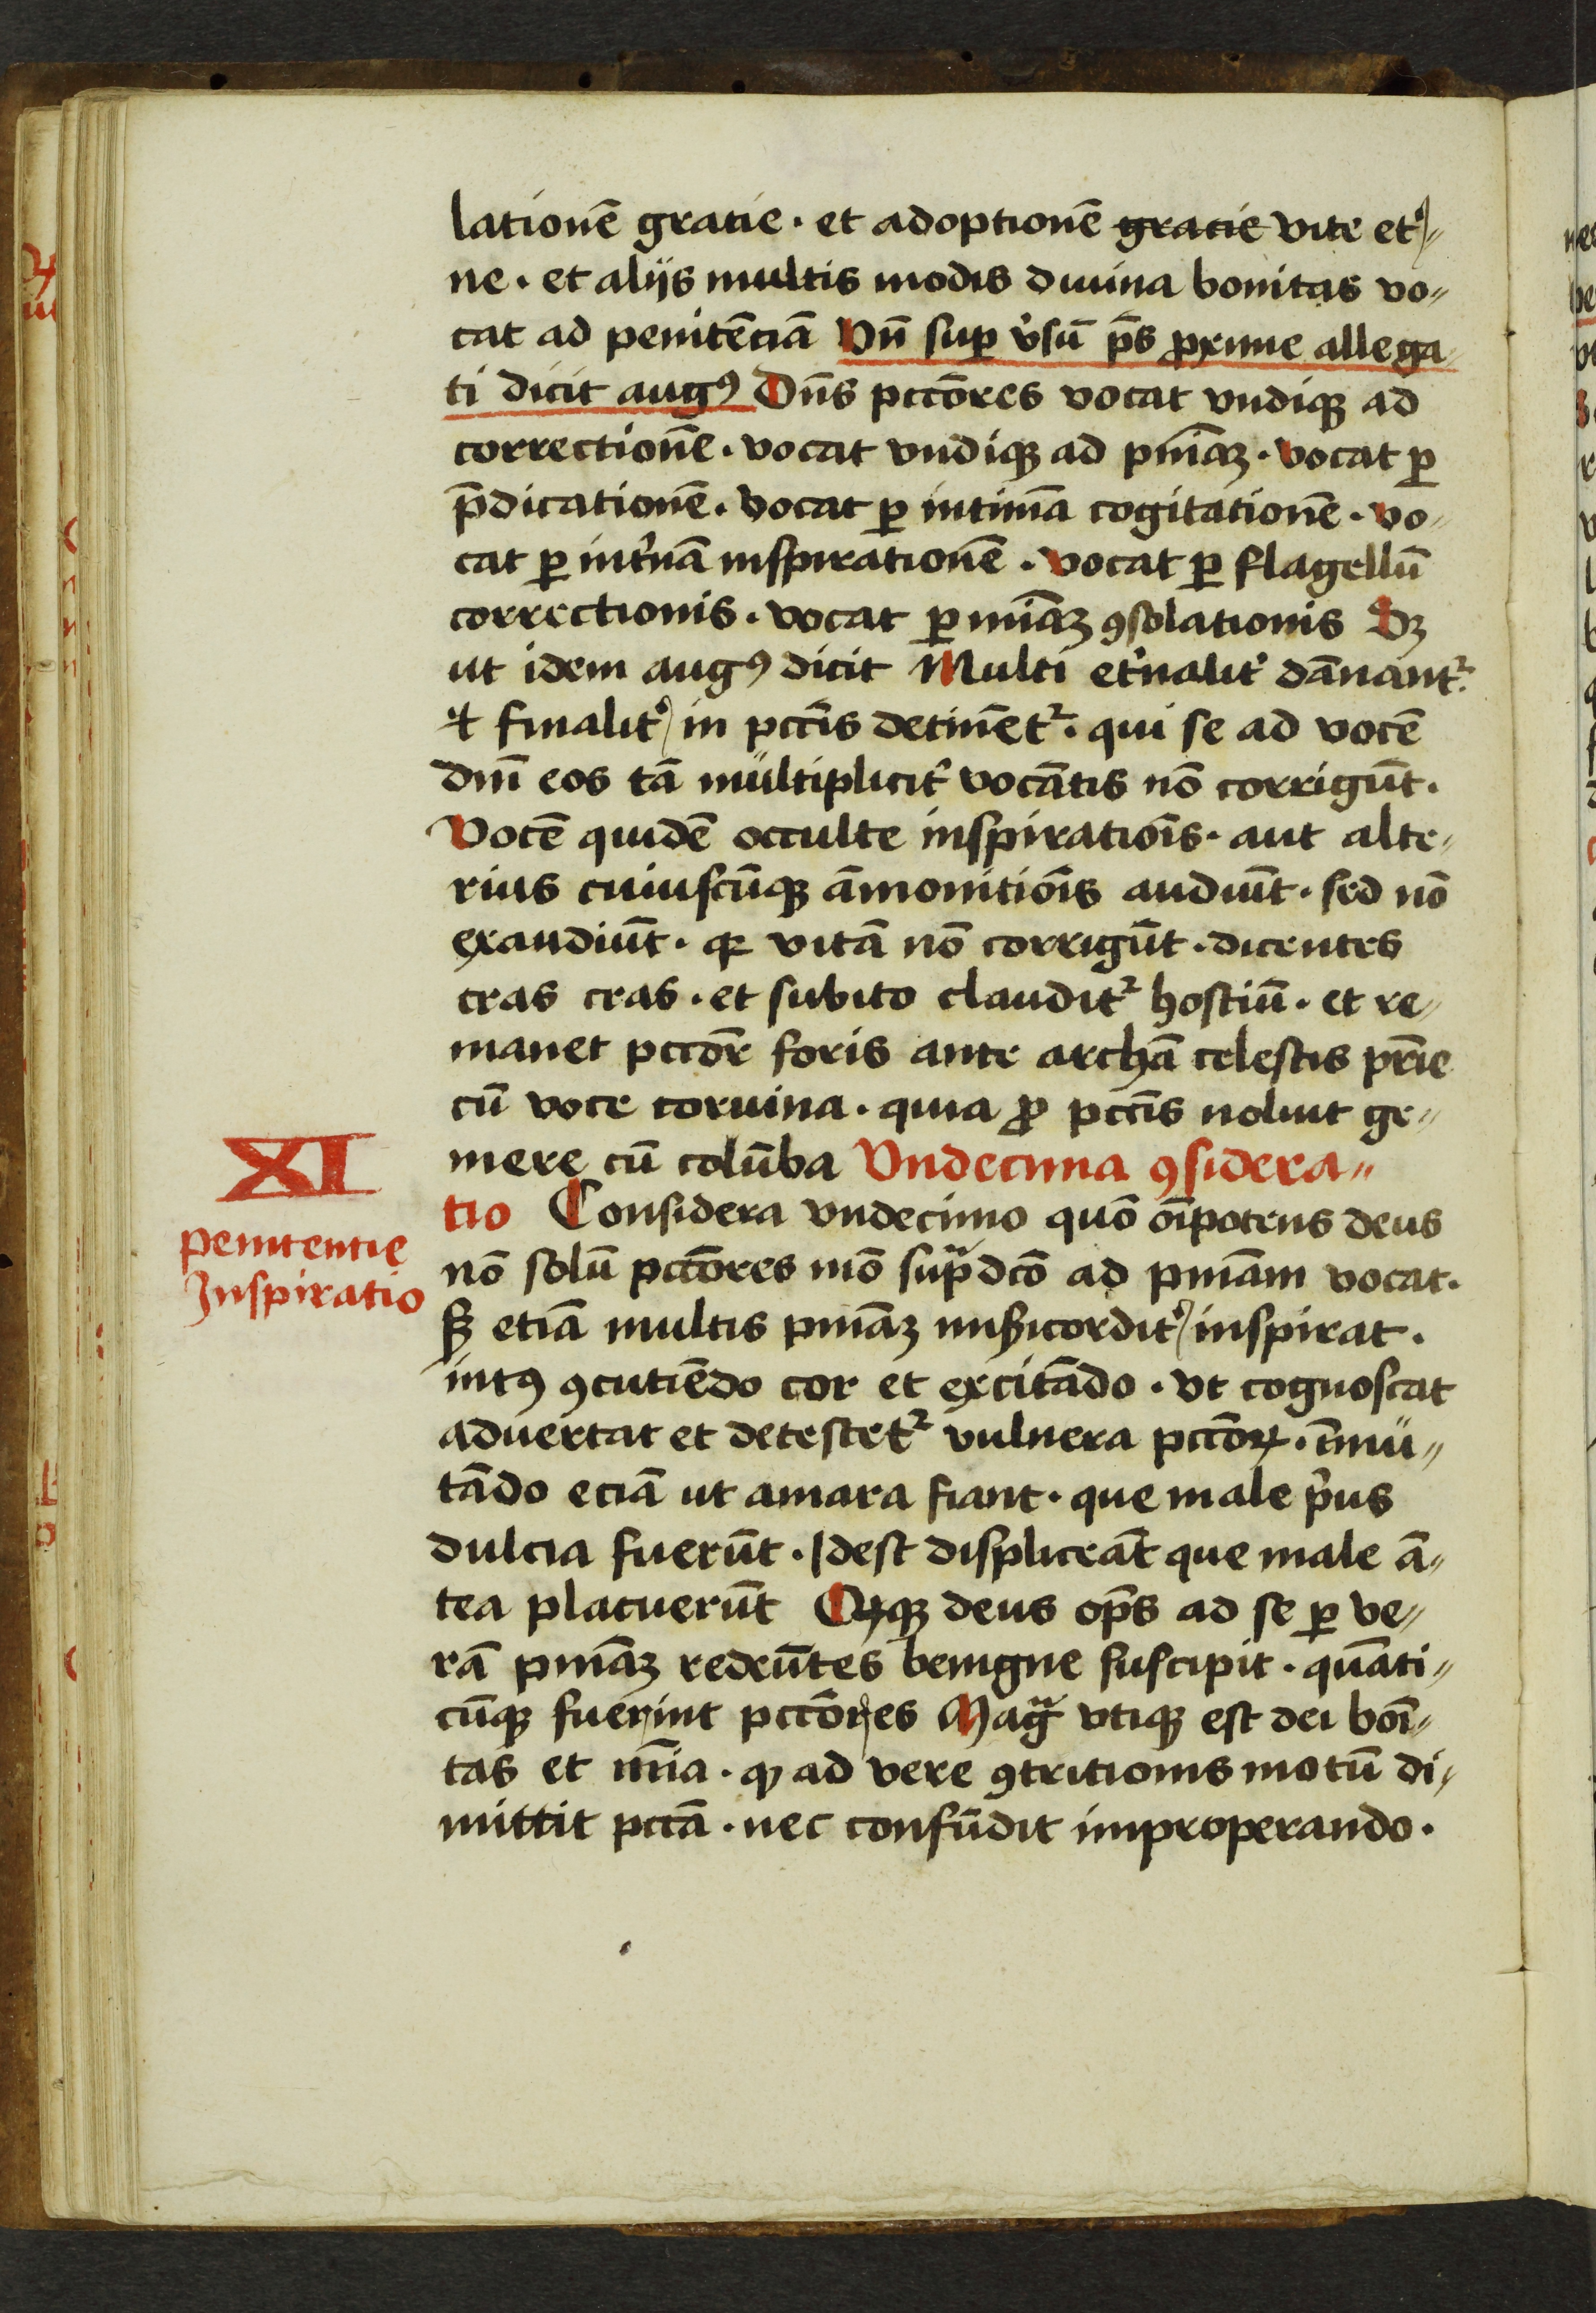 lationē gratie · et adoptionē gratie vite et̉
ne · et alijs multis modis diuina bonitas vo
cat ad penitēciā Vn̄ suꝑ v̉sū p̄s ꝓxime allega
ti dicit augꝰ Dn̄s pctōres vocat vndiqꝫ ad
correctionē · vocat vndiqꝫ ad pniāꝫ · vocat ꝑ
p̄dicationē · vocat ꝑ intimā cogitationē · vo
cat ꝑ int̉nā inspirationē · vocat ꝑ flagellū
correctionis · vocat ꝑ miāꝫ ꝯsolationis Sꝫ
ut idem augꝰ dicit Multi et̉nalit̉ dānant᷑
⁊ finalit̉ in pctīs detinēt᷑ · qui se ad vocē
dnī eos tā multiplicit̉ vocātis nō corrigūt ·
Vocē quidē occulte inspiratiōis · aut alte
rius cuiuscūqꝫ āmonitiōis audiūt · sed nō
exaudiūt · qꝛ vitā nō corrigūt · dicentes
cras cras · et subito claudit᷑ hostiū · et re
manet pctōr foris ante archā celestis pr̄ie
cū voce coruina · quia ꝓ pctīs noluit ge
mere cū colūba Vndecima ꝯsidera
tio Considera vndecimo quō oīpotens deus
XI
penitentie
Inspiratio
nō solū pctōres mō supᷓdcō ad pniam vocat ·
sꝫ etiā multis pniāꝫ misericordit̉ inspirat ·
intꝰ ꝯcutiēdo cor et excitādo · vt cognoscat
aduertat et detestet᷑ vulnera pctōꝝ · īmu
tādo eciā ut amara fiant · que male pⁱus
dulcia fuerūt · Idest displiceāt que male ā
tea placuerūt deus op̄s ad se ꝑ ve
rā pniāꝫ redeūtes benigne suscipit · quāti
cūqꝫ fuerint pctōres Magᷓ vtiqꝫ est dei bōi
tas et mīa · ꝙ ad vere ꝯtritionis motū di
mittit pctā · nec confūdit improperando ·